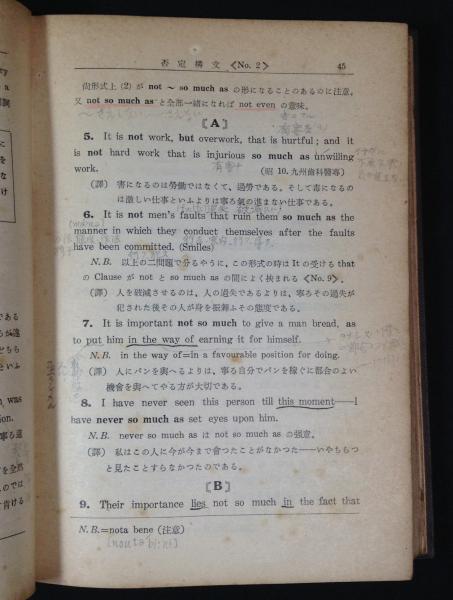 否定構文 〈No. 2〉 45
尙形式上 (2) が not ～ so much as の形になることのあるのに注意。
又 not so much as と全部一緒になれば not even の意味。
【A】
5. It is not work, but overwork, that is hurtful; and it
is not hard work that is injurious so much as unwilling
work. (昭 10. 九州歯科醫專)
(譯) 害になるのは勞働ではなくて、過勞である。そして毒になるの
は激しい仕事といふよりは寧ろ氣の進まない仕事である。
6. It is not men's faults that ruin them so much as the
manner in which they conduct themselves after the faults
have been committed. (Smiles)
N.B. 以上の二問題で分るやうに、この形式の時は It の受ける that
の Clause が not と so much as の間によく挾まれる 〈No. 9〉.
(譯) 人を破滅させるのは、人の過失であるよりは、寧ろその過失が
犯された後その人が身を振舞ふその態度である。
7. It is important not so much to give a man bread, as
to put him in the way of earning it for himself.
N.B. in the way of=in a favourable position for doing.
(譯) 人にパンを與へるよりは、寧ろ自分でパンを稼ぐに都合のよい
機會を與へてやる方が大切である。
8. I have never seen this person till this moment—I
have never so much as set eyes upon him.
N.B. never so much as は not so much as の强意。
(譯) 私はこの人に今が今まで會つたことがなかつた——いやちらつ
と見たことすらなかつたのである。
【B】
9. Their importance lies not so much in the fact that
N.B.=nota bene (注意)